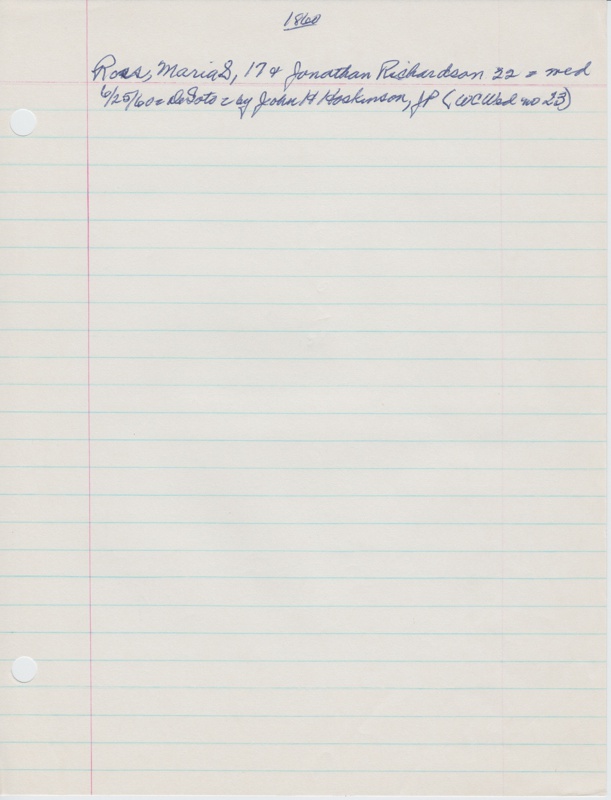 1860
Ross, Maria S, 17 & Jonathan Richardson 22 = wed
6/25/60 = DeSoto = by John H Hoskinson, JP (WC Wed no 23)